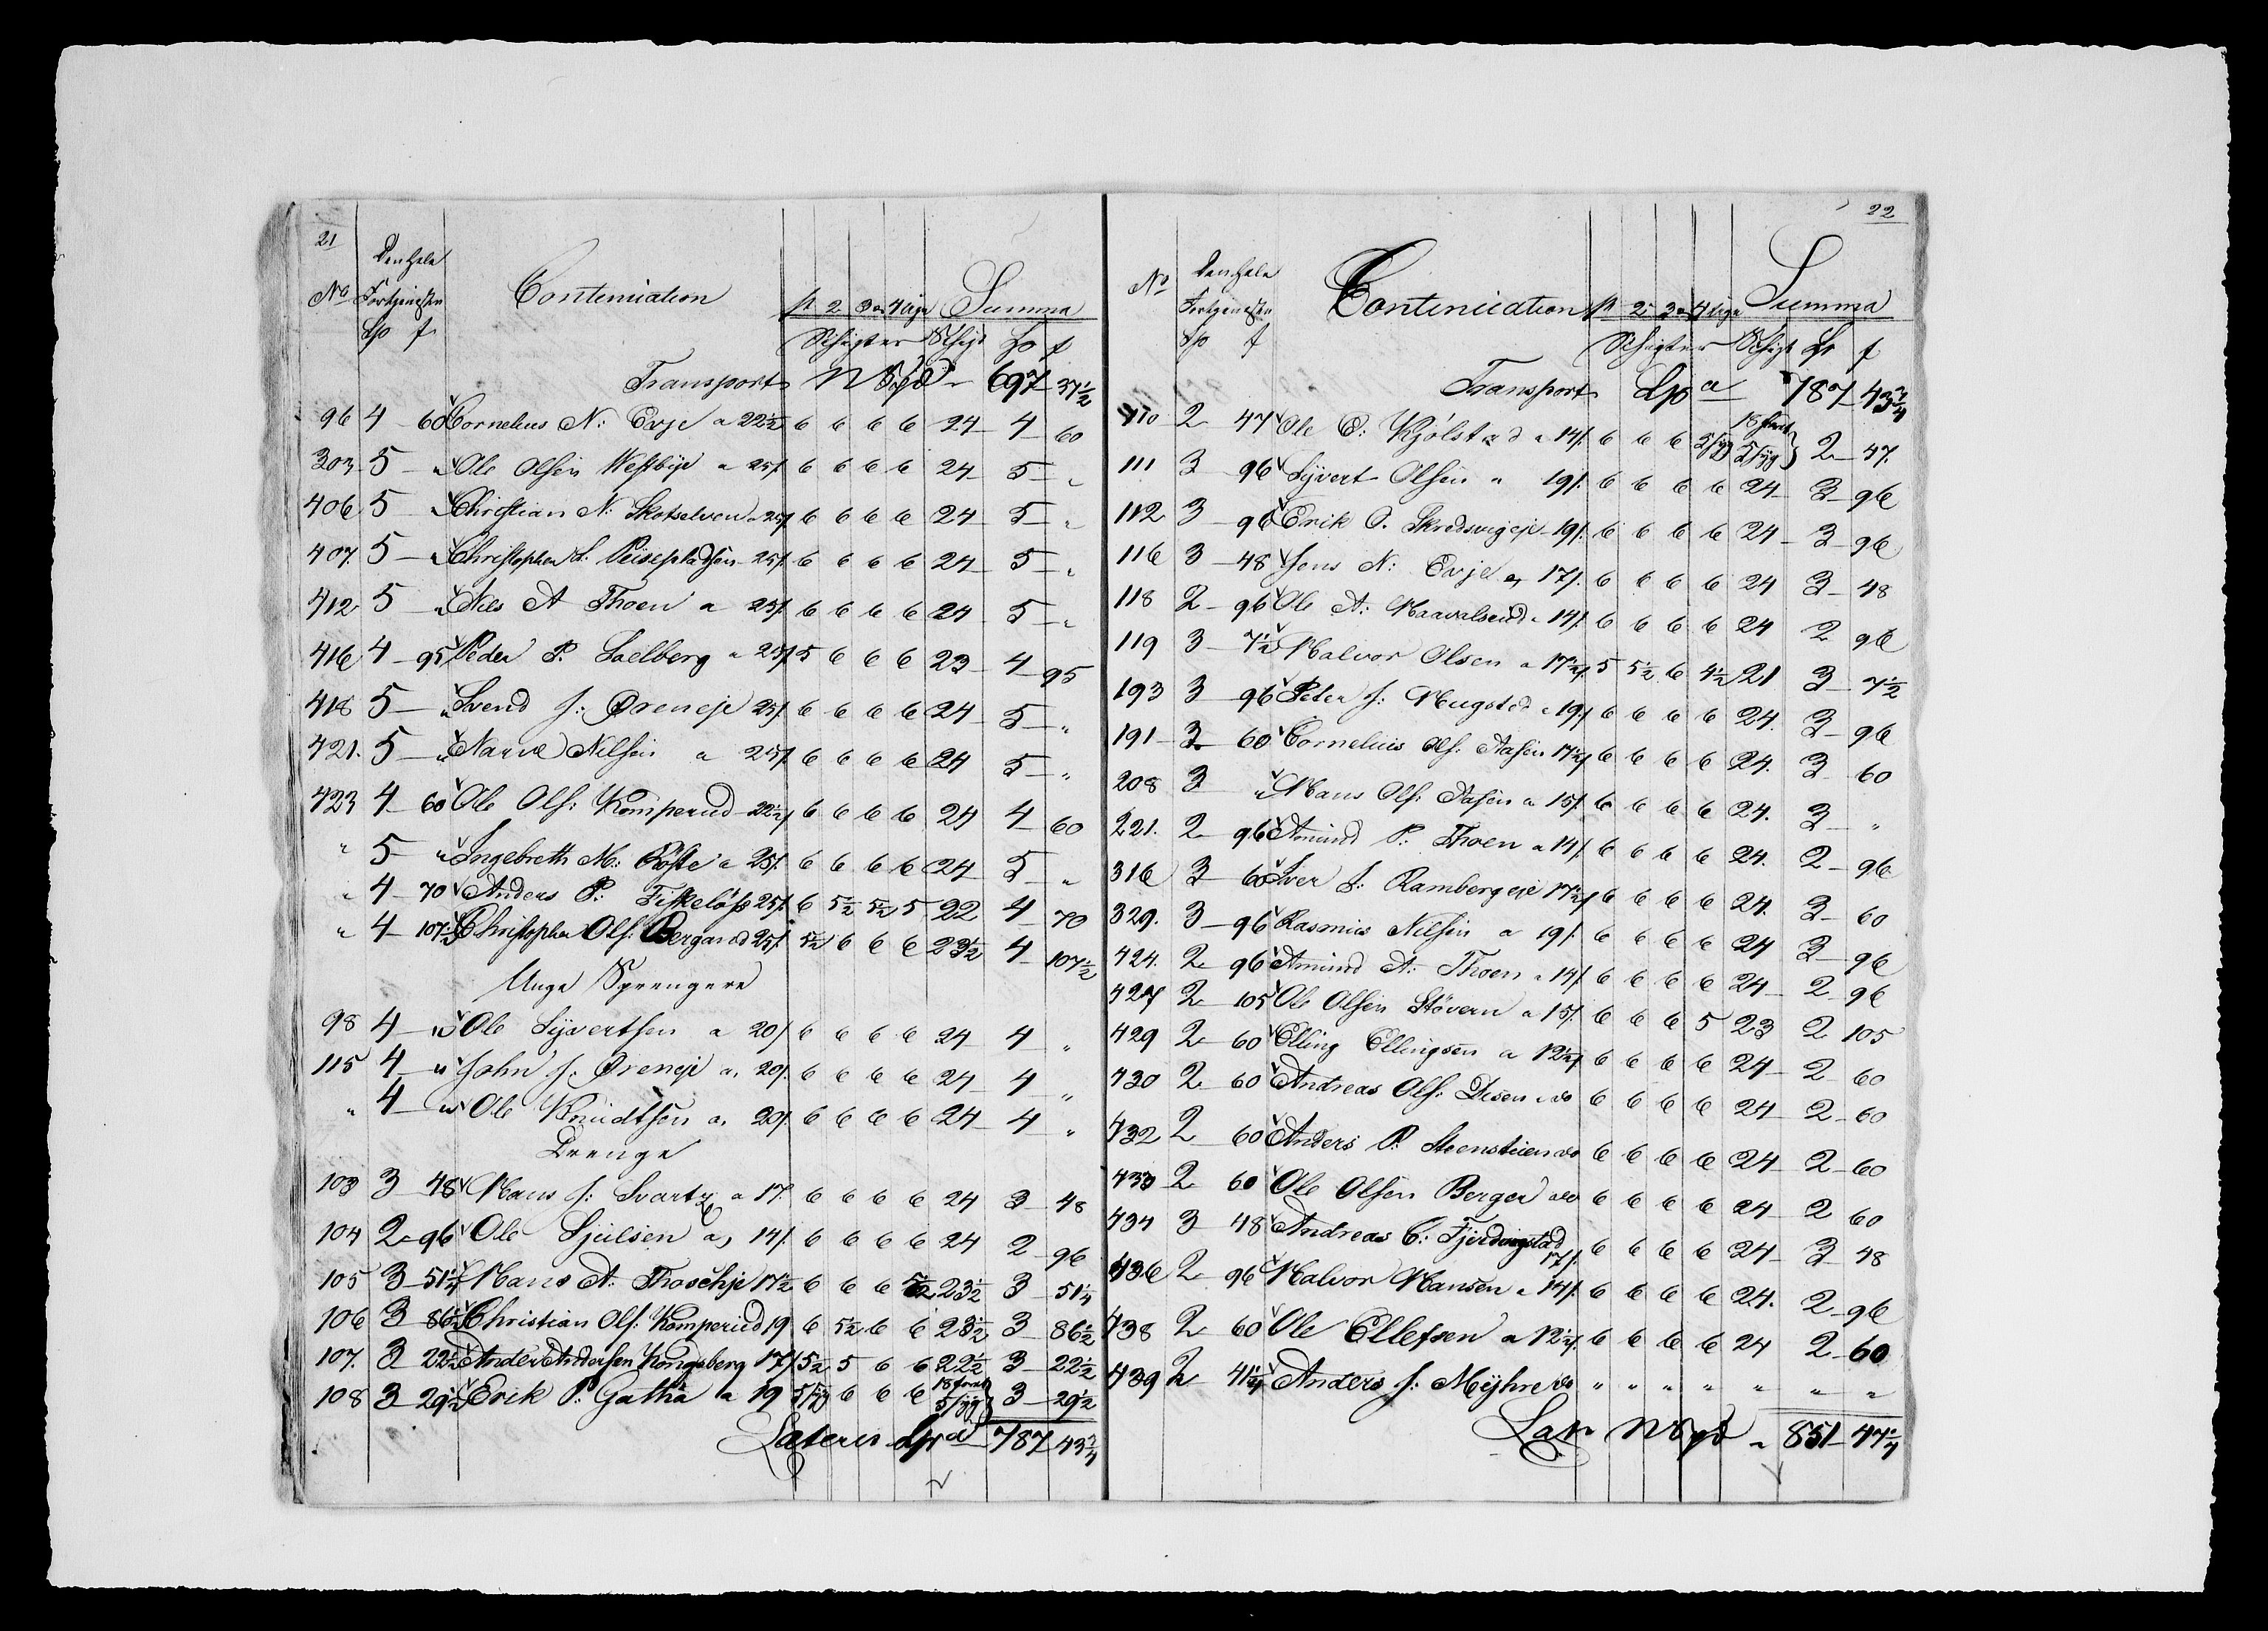 21
Den hele
No Fortjenesten Continuation 1t 2 3 og 4 Uge Summa
Sp f Schigter Schigt Sp f
Transport 697 37½
96 4 60 Cornelius N: Evje a 22½ 6 6 6 6 24 4 60
303 5 " Ole Olsen Westbye a 25f 6 6 6 6 24 5 "
406 5 " Christian N: Skotselven a 25f 6 6 6 6 24 5 "
407. 5 " Christopher 25f 6 6 6 6 24 5 "
412 5 " Niels A Thoen a 25f 6 6 6 6 24 5 "
416 4 95 Peder P. Soelberg a 25f 5 6 6 6 23 4 95
418 5 " Svend J: Øreneje 25f 6 6 6 6 24 5 "
421. 5 " Narve Nilsen a 25f 6 6 6 6 24 5 "
423 4 60 Ole Ols: Komperud 22½f 6 6 6 6 24 4 60
" 5 " Ingebreth M: Røste a 25f 6 6 6 6 24 5 "
" 4 70 Anders P: Fiskeløss 25f 6 5½ 5½ 5 22 4 70
" 4 107½ Christopher Ols: Bergand 25f 5½ 6 6 6 23½ 4 107½
Unge Sprengere
98 4 " Ole Syvertsen a 20f 6 6 6 6 24 4 "
115 4 " John J: Øreneje a 20f. 6 6 6 6 24 4 "
" 4 " Ole Knudtsen a 20f 6 6 6 6 24 4 "
Drenge
103 3 48 Hans J: Svartz a 17. 6 6 6 6 24 3 48
104 2 96 Ole Sjulsen a 14f. 6 6 6 6 24 2 96
105 3 51¼ Hans A: Thoschje 17½ 6 6 6 5½ 23½ 3 51¼
106 3 86½ Christian Ols: Komperud 19 6 5½ 6 6 23½ 3 86½
107. 3 22½ Anders Andersen Kongsberg 17f 5½ 5 6 6 22½ 3 22½
108 3 29½ Erik P: Gatha a 19 5/syg 6 6 6 18 frisk 5/syg 3 29½
Lateris Spd 787 43¾
22
Den hele
No Fortjenesten Continuation 1t 2 3 4 Uge Summa
Sp f Schigter Schigt Sp f
Transport Spd 787 43¾
110 2 47 Ole E: Kjølstad a 14f. 6 6 6 5/syg 18 frisk 5/syg 2 47.
111 3 96 Syvert Olsen a 19f. 6 6 6 6 24 3 96
112 3 96 Erik O. Skredsvigeje 19f. 6 6 6 6 24 3 96
116 3 48 Jens N: Evje a 17f. 6 6 6 6 24 3 48
118 2 96 Ole A: Haavalsrud a 14f. 6 6 6 6 24 2 96
119 3 7½ Halvor Olsen a 17½f 5 5½ 6 4½ 21 3 7½
193 3 96 Peter J: Hugsted a 19f 6 6 6 6 24. 3 96
191 3 60 Cornelius Ols: Aasen 17½f 6 6 6 6 24. 3 60
208 3 " Hans Ols: Aasen a 15f. 6 6 6 6 24. 3 "
221. 2 96 Amund P: Thoen a 14f. 6 6 6 6 24. 2 96
316 3 60 Iver S: Rambergeje 17½f 6 6 6 6 24. 3 60
329. 3 96 Rasmus Nilsen a 19f. 6 6 6 6 24 3 96
424. 2 96 Amund A: Thoen a 14f. 6 6 6 6 24 2 96
427 2 105 Ole Olsen Støvern a 15f. 6 6 6 5 23 2 105
429 2 60 Elling Ellingsen a 12½f 6 6 6 6 24 2 60
430 2 60 Andreas Ols: Disen a do 6 6 6 6 24 2 60
432 2 60 Anders P: Steenstuen do 6 6 6 6 24 2 60
433 2 60 Ole Olsen Berger do 6 6 6 6 24 2 60
434 3 48 Andreas C: Fjerdingstad 17f. 6 6 6 6 24 3 48
436 2 96 Halvor Hansen a 14f. 6 6 6 6 24. 2 96
438 2 60 Ole Ellefsen a 12½f. 6 6 6 6 24 2 60
439 2 41¼ Anders J: Meyhre do " " " " " " "
Lat: 851 47¼